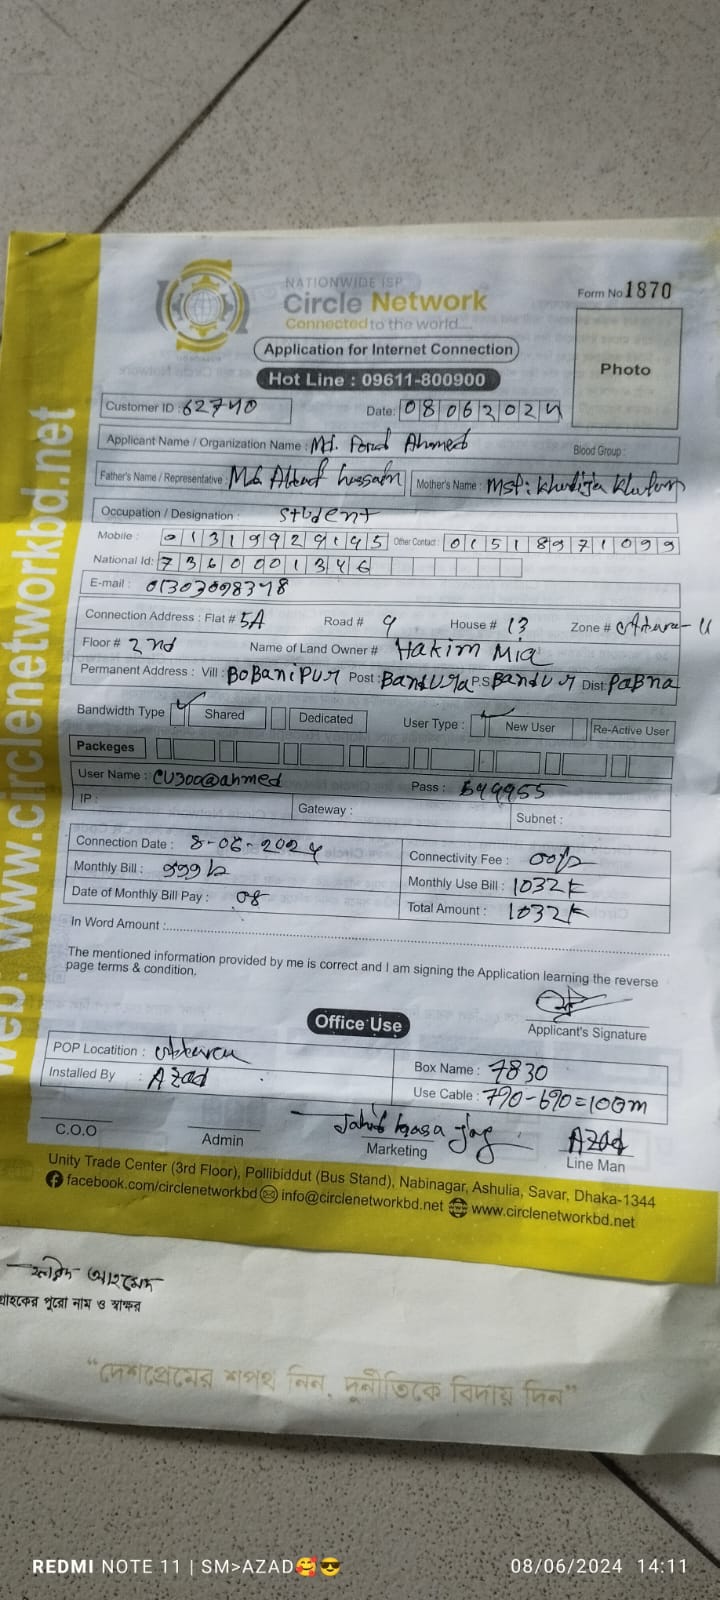 NATIONWIDE ISP
Circle Network
Connected to the world....
Form No 1870
Application for Internet Connection
Photo
Hot Line : 09611-800900
Customer ID : 62740
Date: 08062024
Applicant Name / Organization Name : Md. Ahmed
Blood Group :
Father's Name / Representative : Md. Mother's Name : Mst: Khadija Khatun
Occupation / Designation : Student
Mobile : 01319929195 Other Contact : 01518971099
National Id: 7360001346
E-mail : 01303098378
Connection Address : Flat # 5A Road # 9 House # 13 Zone #
Floor # 2nd Name of Land Owner # Hakim Mia
Permanent Address : Vill : BoBaniPur Post : P.S Dist: PaBna
Bandwidth Type Shared Dedicated User Type : New User Re-Active User
Packeges
User Name : CU300@ahmed Pass : 599955
IP : Gateway : Subnet :
Connection Date : 8-06-2024 Connectivity Fee :
Monthly Bill : Monthly Use Bill : 1032
Date of Monthly Bill Pay : 08 Total Amount : 1032
In Word Amount :
The mentioned information provided by me is correct and I am signing the Application learning the reverse
page terms & condition.
Applicant's Signature
Office Use
POP Locatition : Box Name : 7830
Installed By : Azad Use Cable : 790-690=100m
Azad
C.O.O Admin Marketing Line Man
Unity Trade Center (3rd Floor), Pollibiddut (Bus Stand), Nabinagar, Ashulia, Savar, Dhaka-1344
facebook.com/circlenetworkbd info@circlenetworkbd.net www.circlenetworkbd.net
web: www.circlenetworkbd.net
ফরিদ আহমেদ
গ্রাহকের পুরো নাম ও স্বাক্ষর
“দেশপ্রেমের শপথ নিন, দুর্নীতিকে বিদায় দিন”
REDMI NOTE 11 | SM>AZAD🥰😎
08/06/2024 14:11